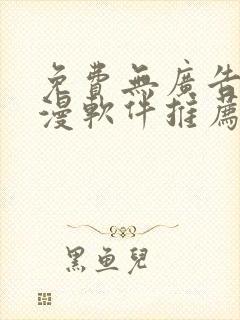 免費無廣告
漫軟件推薦
黑魚兒